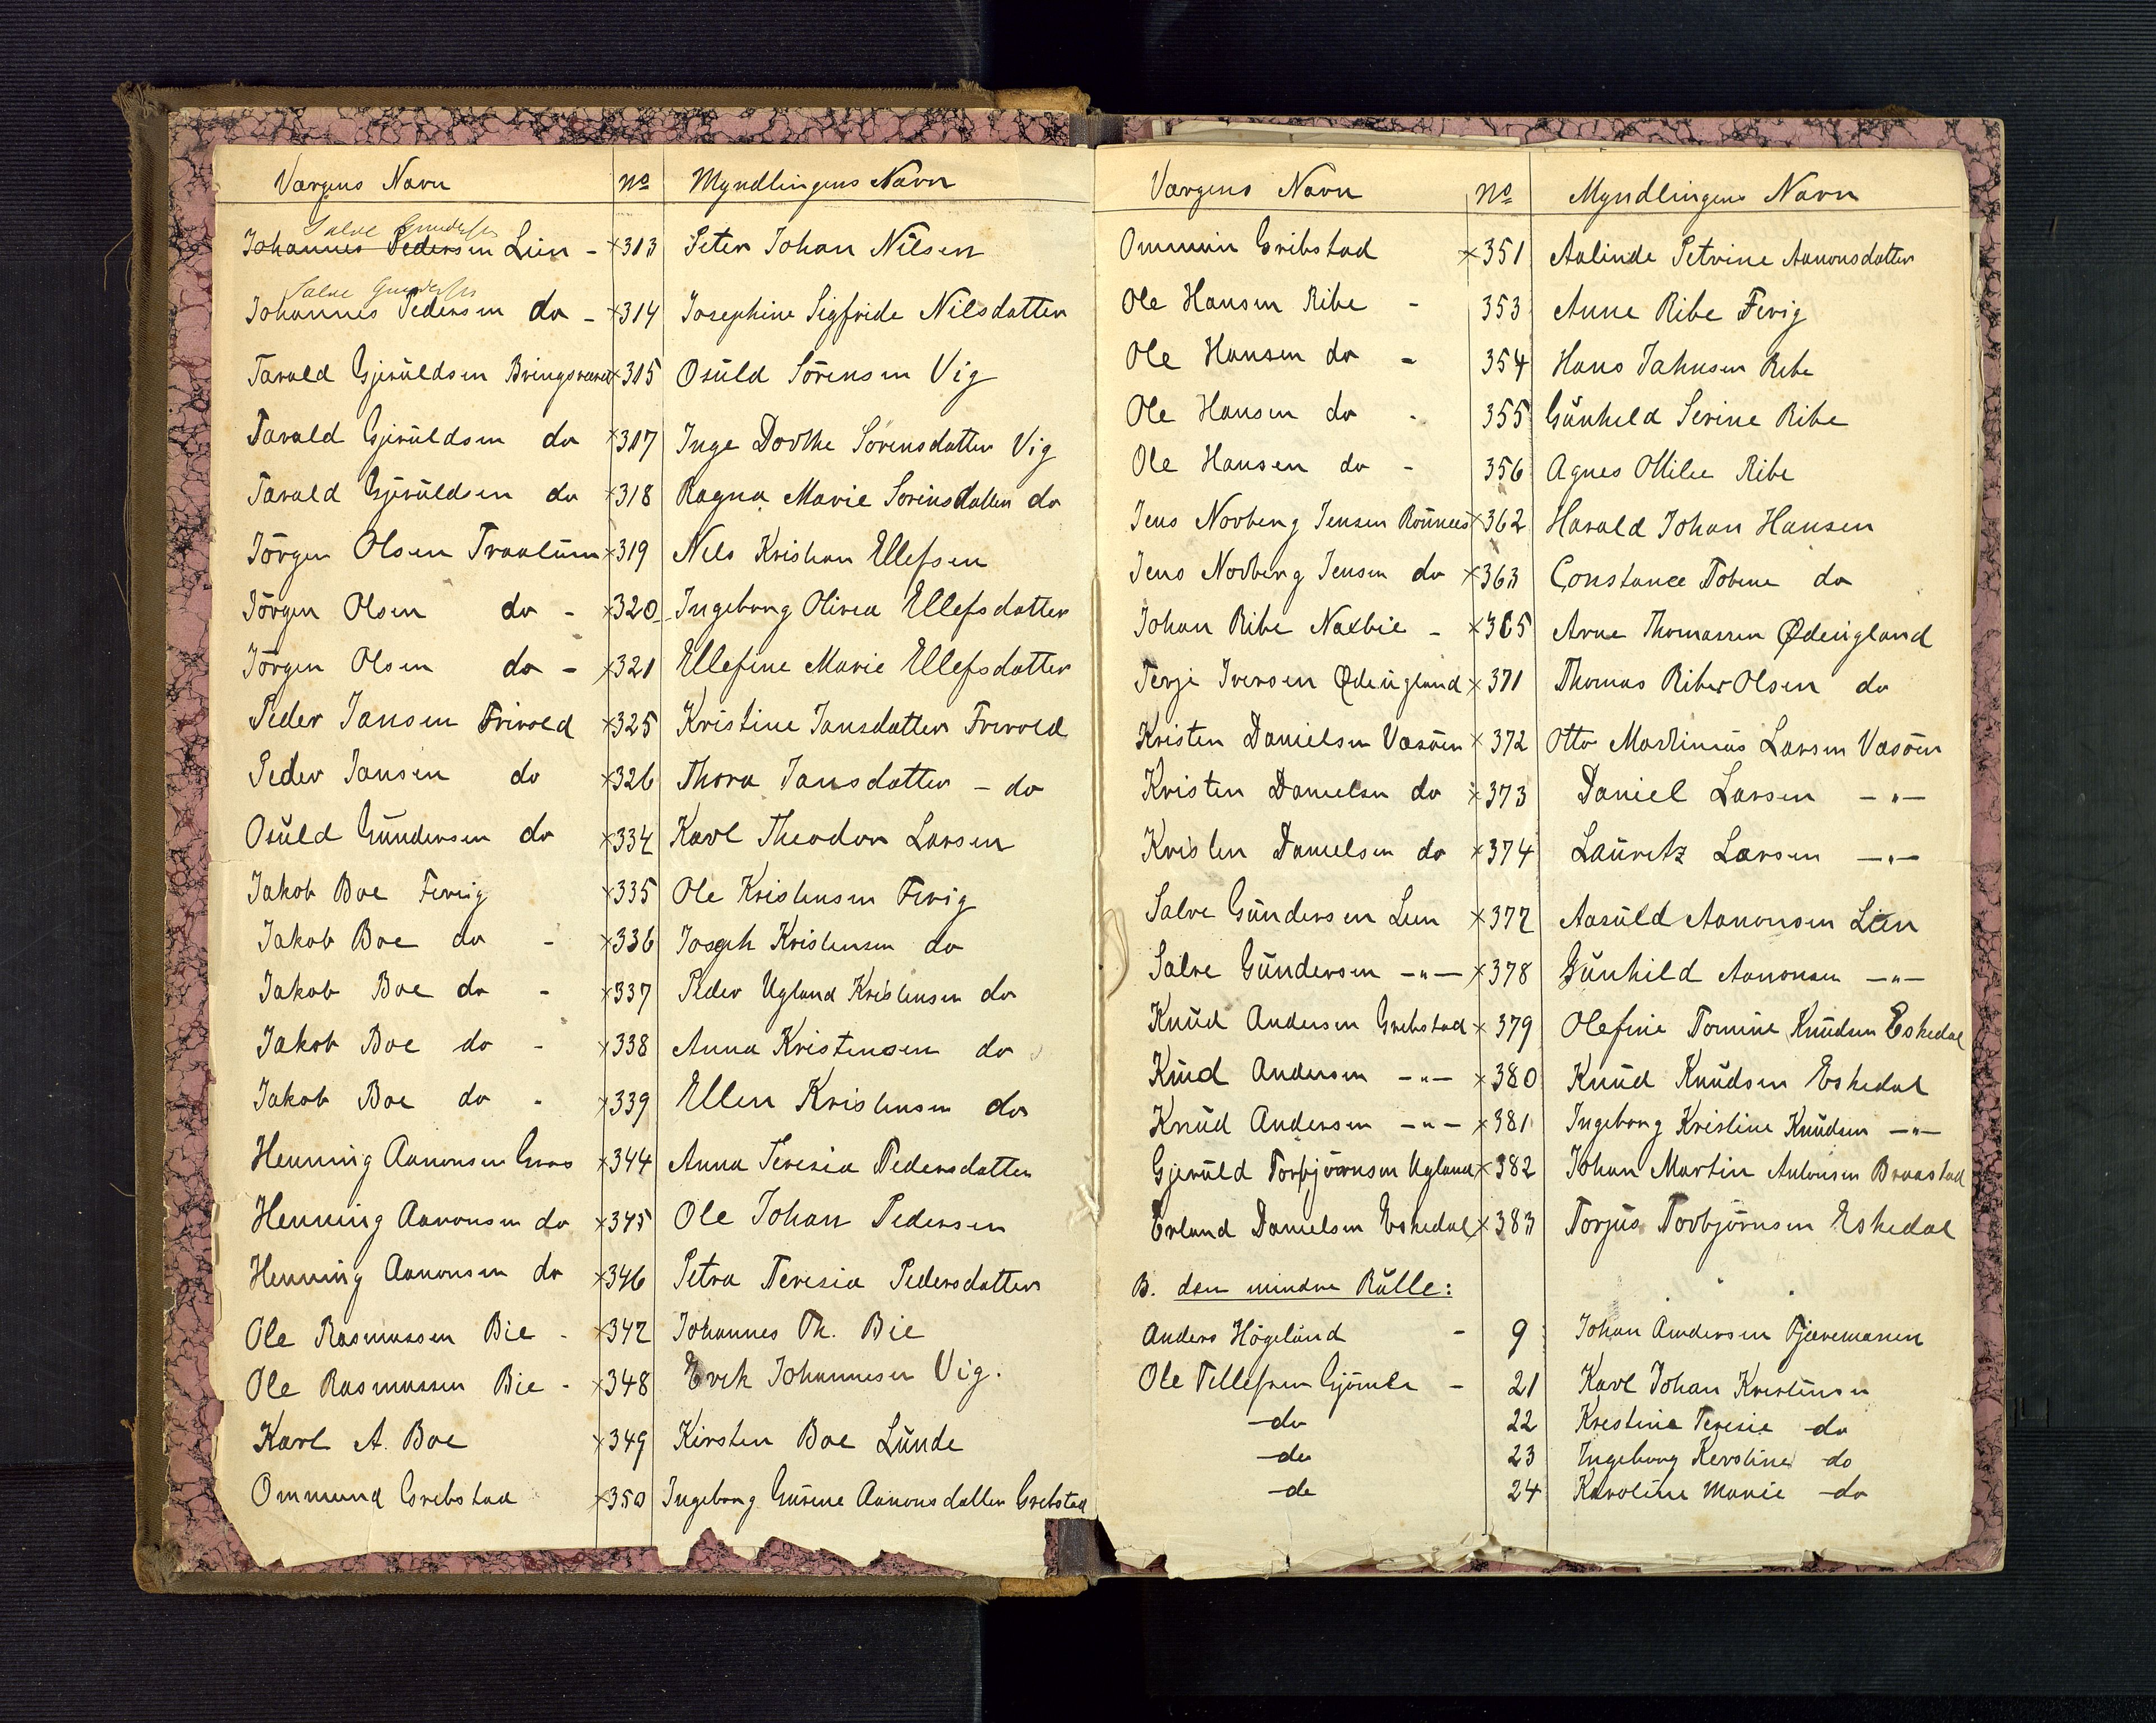 Værgens Navn No Myndlingens Navn
Salve Gundersen
Johannes Pedersen Lien - ×313 Peter Johan Nilsen
Salve Gundersen
Johannes Pedersen do - ×314 Josephine Sigfride Nilsdatter
Tarald Gjeruldsen Bringsværd ×315 Osuld Sörensen Vig
Tarald Gjeruldsen do ×317 Inge Dorthe Sörensdatter Vig
Tarald Gjeruldsen do ×318 Ragna Marie Sörensdatter do
Jörgen Olsen Traalum ×319 Nels Kristian Ellefsen
Jörgen Olsen do - ×320 Ingeborg Olivia Ellefsdatter
Jörgen Olsen do - ×321 Ellefine Marie Ellefsdatter
Peder Jansen Frivold ×325 Kristine Jansdatter Frivold
Peder Jansen do ×326 Thora Jansdatter - do
Osuld Gundersen do ×334 Karl Theodor Larsen
Jakob Boe Fevig ×335 Ole Kristensen Fevig
Jakob Boe do - ×336 Joseph Kristensen do
Jakob Boe do - ×337 Peder Ugland Kristensen do
Jakob Boe do - ×338 Anna Kristensen do
Jakob Boe do - ×339 Ellen Kristensen do
Henning Aanonsen Groos ×344 Anna Teresia Pedersdatter
Henning Aanonsen do ×345 Ole Johan Pedersen
Henning Aanonsen do ×346 Petra Teresia Pedersdatter
Ole Rasmussen Bie - ×347 Johannes Th. Bie
Ole Rasmussen Bie - ×348 Erik Johannesen Vig.
Karl A. Boe ×349 Kirsten Boe Lunde
Ommund Grebstad ×350 Ingeborg Gurine Aanonsdatter Grebstad
Værgens Navn No Myndlingens Navn
Ommun Gribstad ×351 Aalinde Petrine Aanonsdatter
Ole Hansen Ribe - 353 Anne Ribe Fevig
Ole Hansen do - 354 Hans Jahnsen Ribe
Ole Hansen do - 355 Gunhild Serine Ribe
Ole Hansen do - 356 Agnes Otilie Ribe
Jens Norberg Jensen Rönnes ×362 Harald Johan Hansen
Jens Norberg Jensen do ×363 Constance Tobine do
Johan Ribe Naxbie - ×365 Arne Thomassen Ødeugland
Terje Iversen Ødeugland ×371 Thomas Riber Olsen do
Kristen Danielsen Vasöen ×372 Otto Martinius Larsen Vasöen
Kristen Danielsen do ×373 Daniel Larsen -"-
Kristen Danielsen do ×374 Lauritz Larsen -"-
Salve Gundersen Lien ×377 Aasuld Aanonsen Lien
Salve Gundersen -"- ×378 Gunhild Aanonsen -"-
Knud Andersen Grebstad ×379 Olefine Tomine Knudsen Eskedal
Knud Andersen -"- ×380 Knud Knudsen Eskedal
Knud Andersen -"- ×381 Ingeborg Kristine Knudsen -"-
Gjeruld Torbjörnsen Ugland ×382 Johan Martin Antonsen Braastad
Erland Danielsen Eskedal ×383 Torjus Torbjörnsen Eskedal
B. den mindre Rulle:
Anders Högelund - 9 Johan Andersen
Ole Tellefsen Gjömle - 21 Karl Johan Kristensen
-do 22 Kristine Teresie -do
-do 23 Ingeborg Kerstine -do
-do 24 Karoline Marie -do